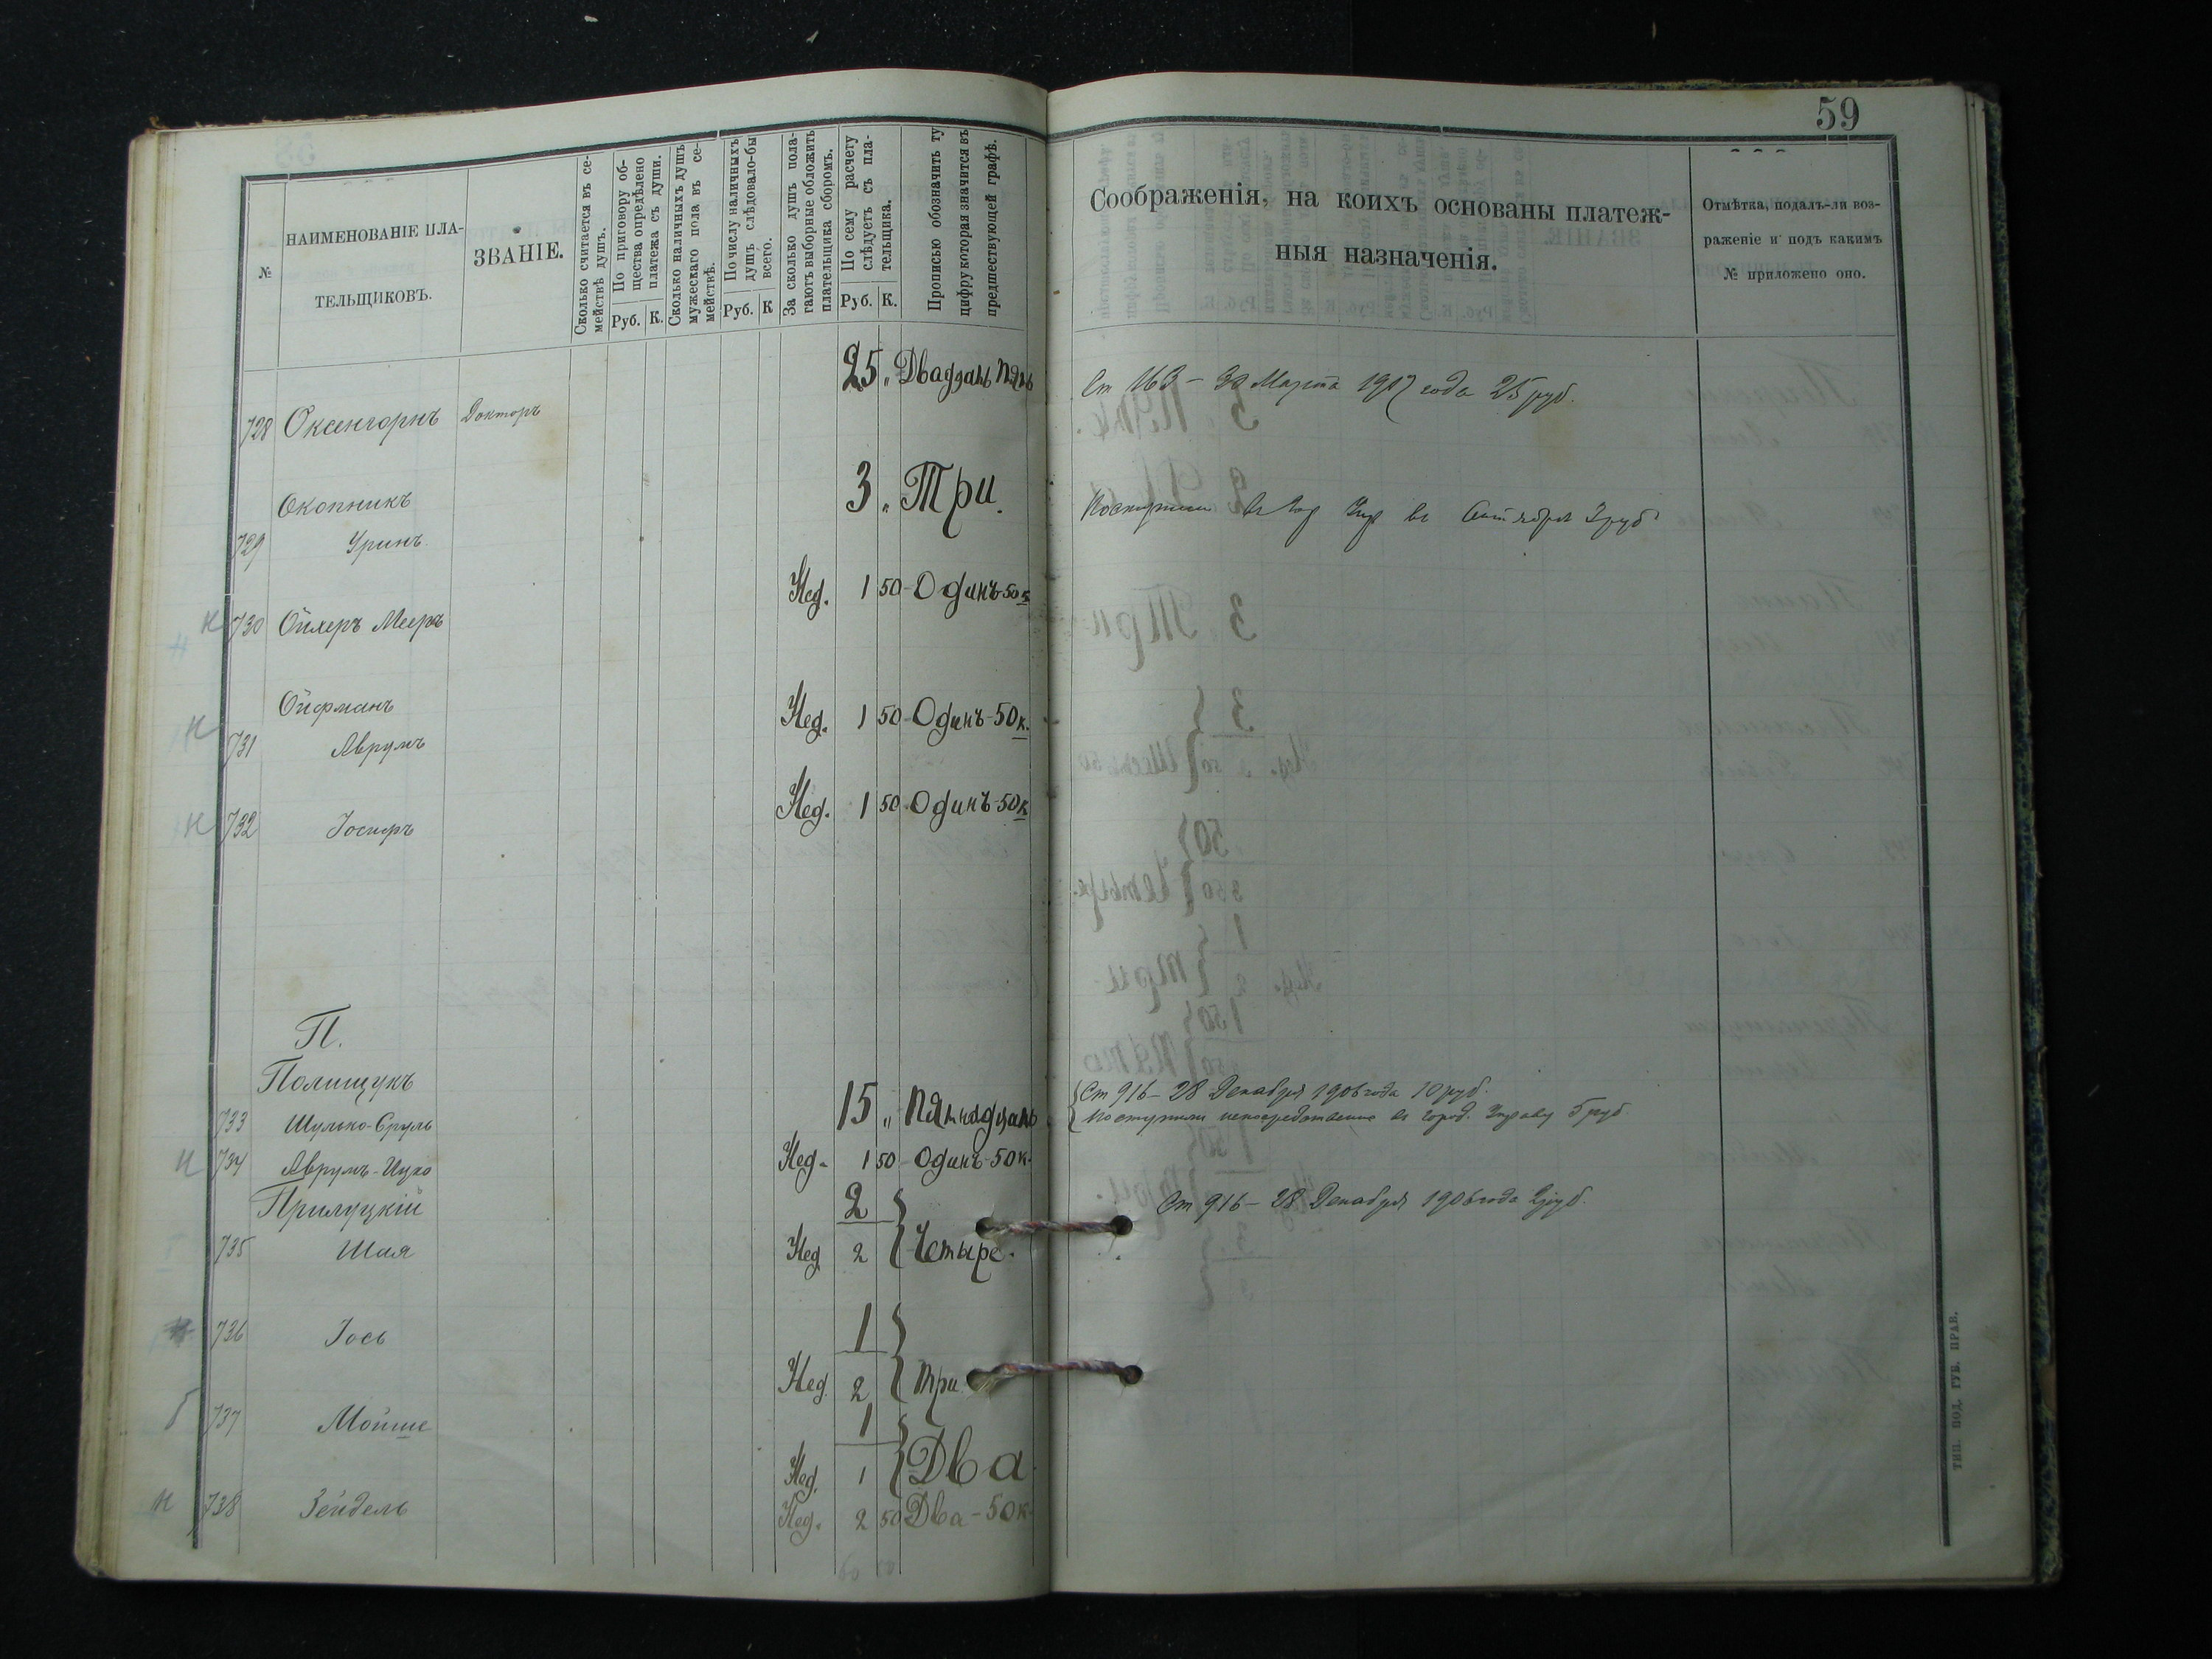 59
№
НАИМЕНОВАНІЕ ПЛА-
ТЕЛЬЩИКОВЪ.
ЗВАНІЕ.
Сколько считается въ се-
мействѣ душъ.
По приговору об-
щества опредѣлено
платежа съ души.
Руб. К.
Сколько наличныхъ душъ
мужескаго пола въ се-
мействѣ.
По числу наличныхъ
душъ слѣдовало-бы
всего.
Руб. К
За сколько душъ пола-
гаютъ выборные обложить
плательщика сборомъ.
По сему расчету
слѣдуетъ съ пла-
тельщика.
Руб. К.
Прописью обозначить ту
цифру которая значится въ
предшествующей графѣ.
Соображенія, на коихъ основаны платеж-
ныя назначенія.
Отмѣтка, подалъ-ли воз-
раженіе и подъ какимъ
№ приложено оно.
25 „ Двадцать пять
Ст 163 – 30 Марта 1907 года 25 руб.
728 Оксенгорнъ Докторъ
3 „ Три.
Окопникъ
Поступили въ Упр въ 3 руб
729 Уринъ
Нед. 1 50 - Одинъ - 50 к.
н 730 Ойхеръ Мееръ
Ойфманъ
Нед. 1 50 - Одинъ - 50 к.
н 731 Аврумъ
Нед. 1 50 - Одинъ - 50 к
н 732 Іосифъ
П.
Полищукъ
15 „ Пятнадцать
Ст 916 – 28 Декабря 1906 года 10 руб.
733 Шулько-Сруль
Поступили непосредственно въ город. Управу 5 руб
н 734 Аврумъ-Ицко
Нед. 1 50 - Одинъ - 50 к.
Прилуцкій
2
Ст 916 – 28 Декабря 1906 года 2 руб.
735 Шая
Нед. 2 Четыре.
736 Іось
1
Нед. 2 три
737 Мойше
1
Нед. 1 Два.
н 738 Зейдель
Нед. 2 50 Два - 50 к.
ТИП. ПОД. ГУБ. ПРАВ.